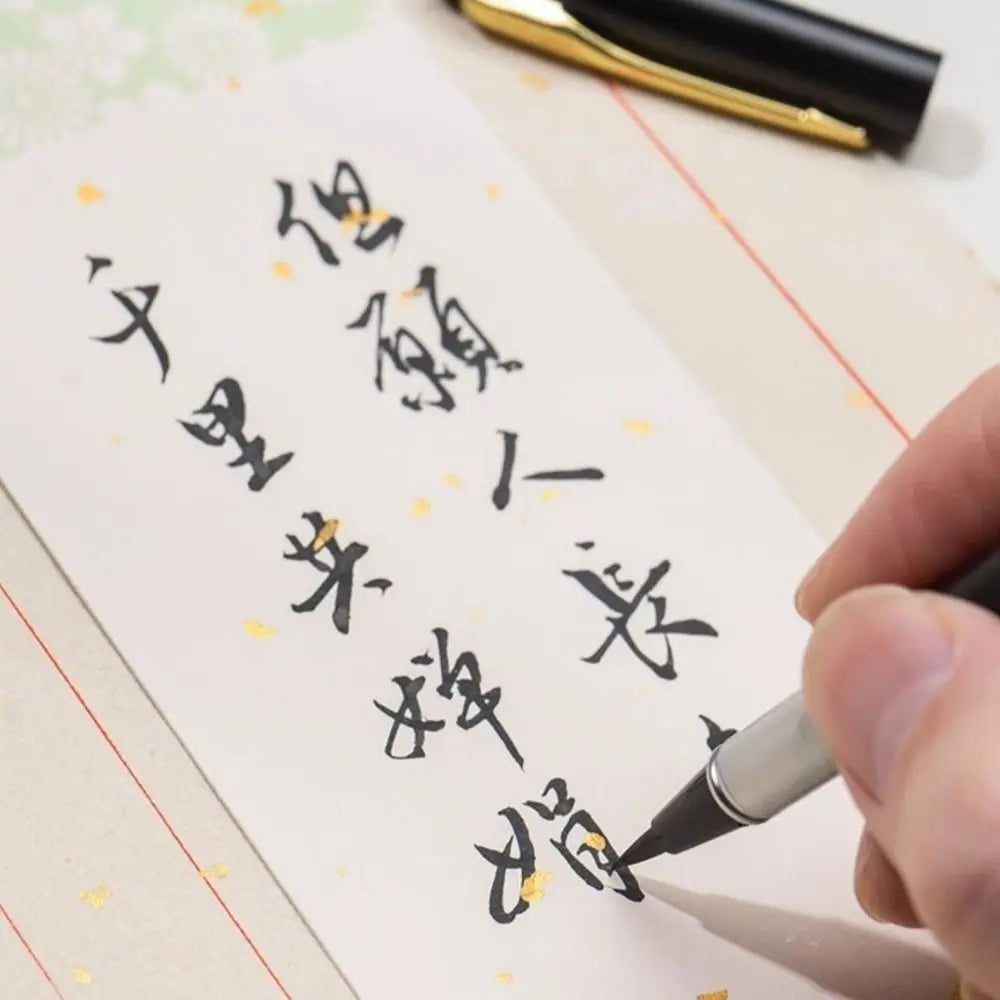 但願人長
千里共嬋娟